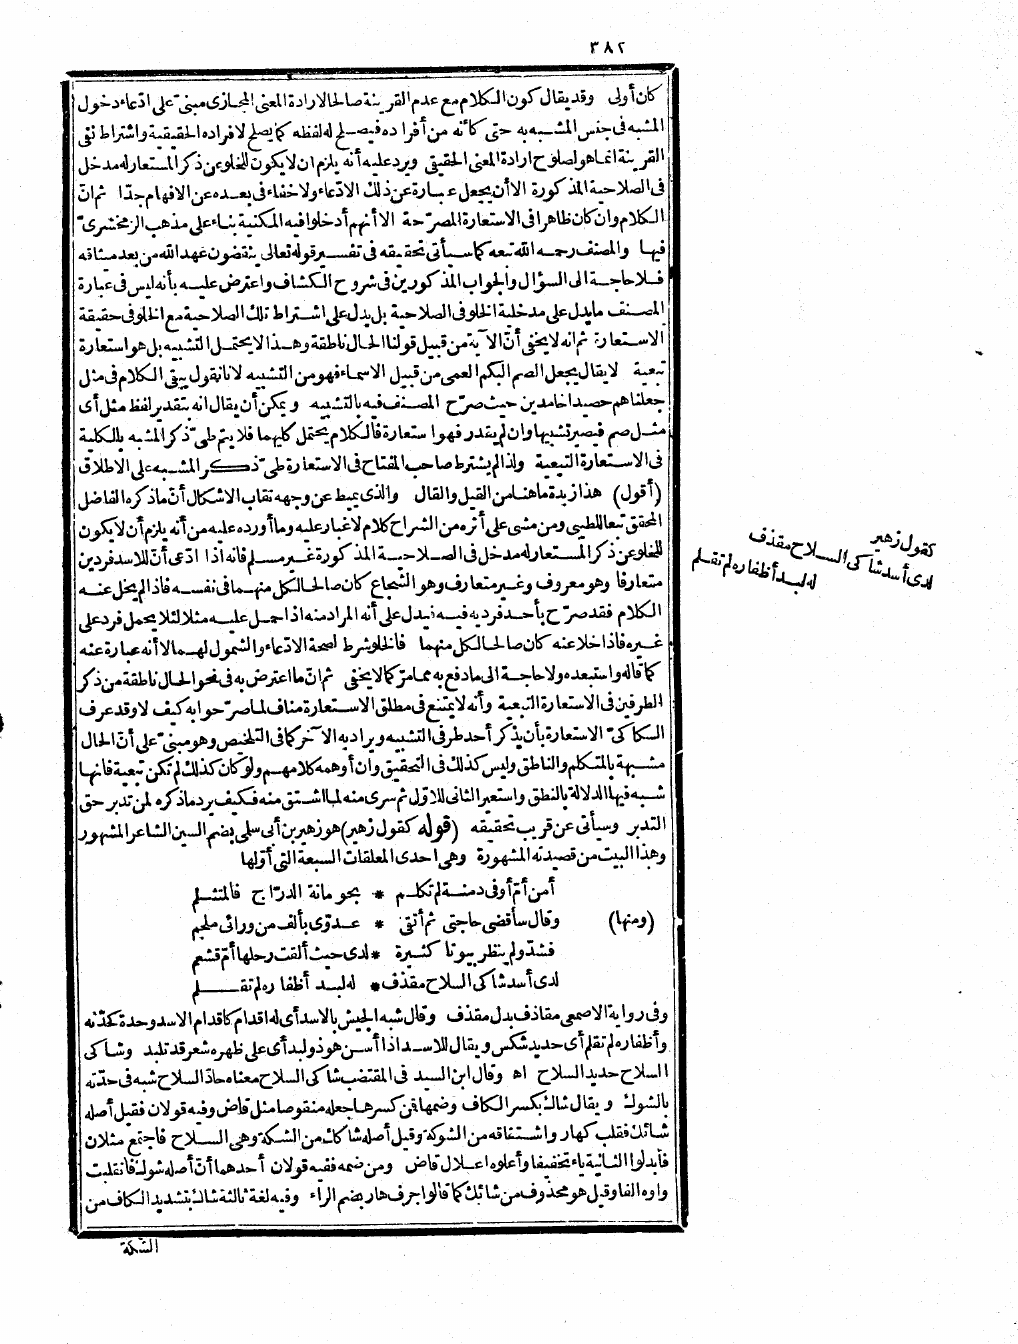 ٣٨٢
كان أولى وقد يقال كون الكلام مع عدم القرينة صالحا لارادة المعنى المجازى مبنىّ على ادّعاء دخول
المشبه فى جنس المشبه به حتى كأنه من أفراده فيصلح له لفظه كما يصلح لافراده الحقيقية واشتراط نفى
القرينة انما هو لصلوح ارادة المعنى الحقيقى ويرد عليه أنه يلزم ان لا يكون للخلوّ عن ذكر المستعار له مدخل
فى الصلاحية المذكورة الا أن يجعل عبارة عن ذلك الادّعاء ولا خفاء فى بعده عن الافهام جدّا ثم انّ
الكلام وان كان ظاهرا فى الاستعارة المصرّحة الا أنهم أدخلوا فيه المكنية بناء على مذهب الزمخشرىّ
فيها والمصنف رحمه الله تبعه كما سيأتى تحقيقه فى تفسير قوله تعالى ينقضون عهد الله من بعد ميثاقه
فلا حاجة الى السؤال والجواب المذكورين فى شروح الكشاف واعترض عليه بأنه ليس فى عبارة
المصنف ما يدل على مدخلية الخلو فى الصلاحية بل يدل على اشتراط تلك الصلاحية مع الخلو فى حقيقة
الاستعارة ثم انه لا يخفى أنّ الآية من قبيل قولنا الحال ناطقة وهذا لا يحتمل التشبيه بل هو استعارة
تبعية لا يقال يجعل الصم البكم العمى من قبيل الاسماء فهو من التشبيه لانا نقول يبقى الكلام فى مثل
جعلناهم حصيدا خامدين حيث صرّح المصنف فيه بالتشبيه ويمكن أن يقال انه بتقدير لفظ مثل أى
مثل صم فيصير تشبيها وان لم يقدر فهو استعارة فالكلام يحتمل كليهما فلا يتم طىّ ذكر المشبه بالكلية
فى الاستعارة التبعية ولذا لم يشترط صاحب المفتاح فى الاستعارة طىّ ذكر المشبه على الاطلاق
(أقول) هذا زبدة ما هنا من القيل والقال والذى يميط عن وجهه نقاب الاشكال أنّ ما ذكره الفاضل
المحقق تبعا للطيبى ومن مشى على أثره من الشراح كلام لا غبار عليه وما أورده عليه من أنه يلزم أن لا يكون
للخلو عن ذكر المستعار له مدخل فى الصلاحية المذكورة غير مسلم فانه اذا ادّعى أنّ للاسد فردين
متعارفا وهو معروف وغير متعارف وهو الشجاع كان صالحا لكل منهما فى نفسه فاذا لم يخل عنه
الكلام فقد صرّح بأحد فرديه فيه فيدل على أنه المراد منه اذا حمل عليه مثلا لئلا يحمل فرد على
غيره فاذا خلا عنه كان صالحا لكل منهما فالخلو شرط لصحة الادّعاء والشمول لهما لا أنه عبارة عنه
كما قاله واستبعده ولا حاجة الى ما دفع به مما مرّ كما لا يخفى ثم انّ ما اعترض به فى نحو الحال ناطقة من ذكر
الطرفين فى الاستعارة التبعية وأنه لا يمتنع فى مطلق الاستعارة مناف لما صرّحوا به كيف لا وقد عرف
السكاكىّ الاستعارة بأن يذكر أحد طرفى التشبيه ويراد به الآخر كما فى التلخيص وهو مبنىّ على أنّ الحال
مشبهة بالمتكلم والناطق وليس كذلك فى التحقيق وان أوهمه كلامهم ولو كان كذلك لم تكن تبعية فانها
شبه فيها الدلالة بالنطق واستعير الثانى للاوّل ثم سرى منه لما اشتق منه فكيف يرد ما ذكره لمن تدبر حق
التدبر وسيأتى عن قريب تحقيقه (قوله كقول زهير) هو زهير بن أبى سلمى بضم السين الشاعر المشهور
وهذا البيت من قصيدته المشهورة وهى احدى المعلقات السبعة التى أوّلها
أمن أمّ أوفى دمنة لم تكلم * بحومانة الدرّاج فالمتثلم
(ومنها) وقال سأقضى حاجتى ثم أتقى * عدوّى بألف من ورائى ملجم
فشدّ ولم ينظر بيوتا كثيرة * لدى حيث ألقت رحلها أمّ قشعم
لدى أسد شاكى السلاح مقذف * له لبد أظفاره لم تقلم
وفى رواية الاصمعى مقاذف بدل مقذف وقال شبه الجيش بالاسد أى له اقدام كاقدام الاسد وحدة كحدّته
وأظفاره لم تقلم أى حديد شكس ويقال للاسد اذا أسن هو ذو لبد أى على ظهره شعر قد تلبد وشاكى
السلاح حديد السلاح اه وقال ابن السيد فى المقتضب شاكى السلاح معناه حادّ السلاح شبه فى حدّته
بالشوك ويقال شاك بكسر الكاف وضمها فمن كسرها جعله منقوصا مثل قاض وفيه قولان فقيل أصله
شائك فقلب كهار واشتقاقه من الشوكة وقيل أصله شاكك من الشكة وهى السلاح فاجتمع مثلان
فأبدلوا الثانية ياء تخفيفا وأعلوه اعلال قاض ومن ضمه ففيه قولان أحدهما أنّ أصله شوك فانقلبت
واوه الفا وقيل هو محذوف من شائك كما قالوا جرف هار بضم الراء وفيه لغة ثالثة شاك بتشديد الكاف من
الشكة
كقول زهير
لدى أسد شاكى السلاح مقذف
له لبد أظفاره لم تقلم